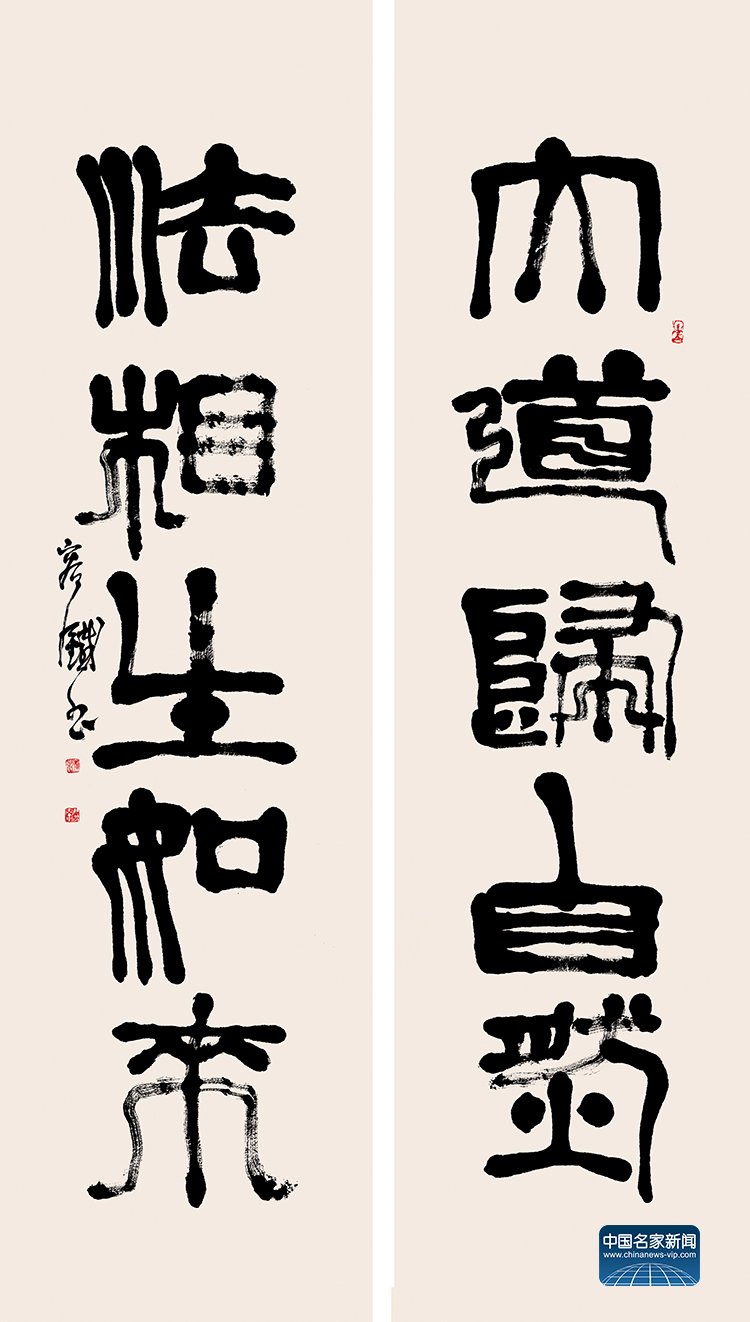 大道歸自然
法相生如来
容鐵书
中国名家新闻
www.chinanews-vip.com